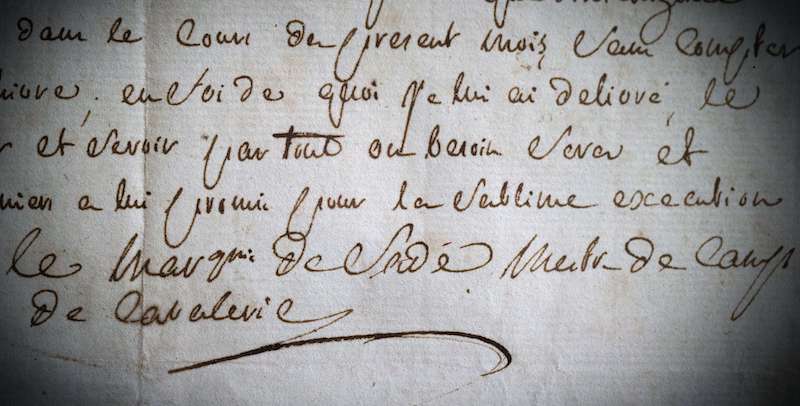 dans le cours du present mois sans compter
en foi de quoi je lui ai delivré, le
et servir par tout ou besoin sera et
a lui promis pour la sublime execution
le Marquis de Sade Mestre de Camp
de Cavalerie